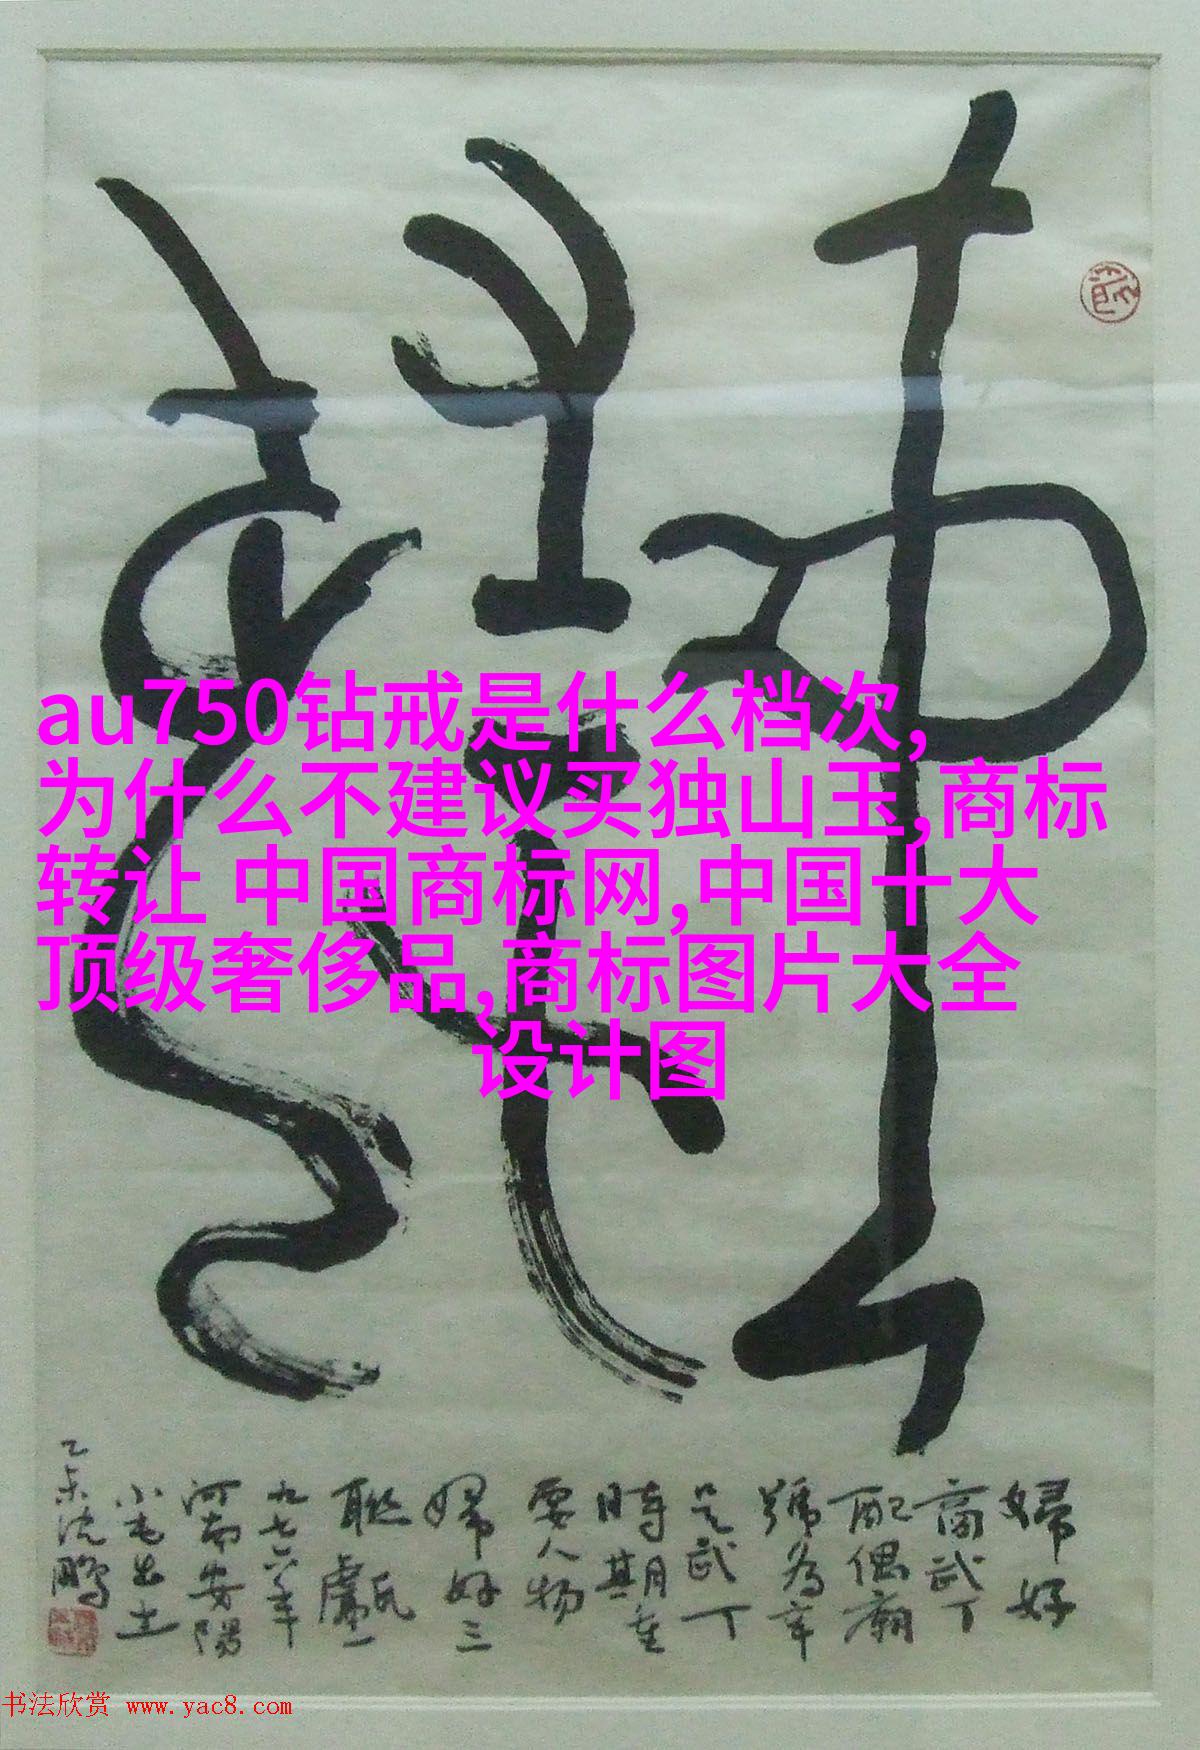 au750钻戒是什么档次,
为什么不建议买独山玉,商标
转让 中国商标网,中国十大
顶级奢侈品,商标图片大全
设计图
婦好
商武丁
配偶廟
號为辛
是武丁
時期重
要人物
婦好三
联甗
九七六年
河南安陽
小屯出土
乙未沈鹏
书法欣赏 www.yac8.com